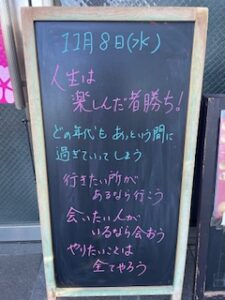 11月8日(水)
人生は
楽しんだ者勝ち!
どの年代も あっという間に
過ぎていってしまう
行きたい所が
あるなら行こう
会いたい人が
いるなら会おう
やりたいことは
全てやろう